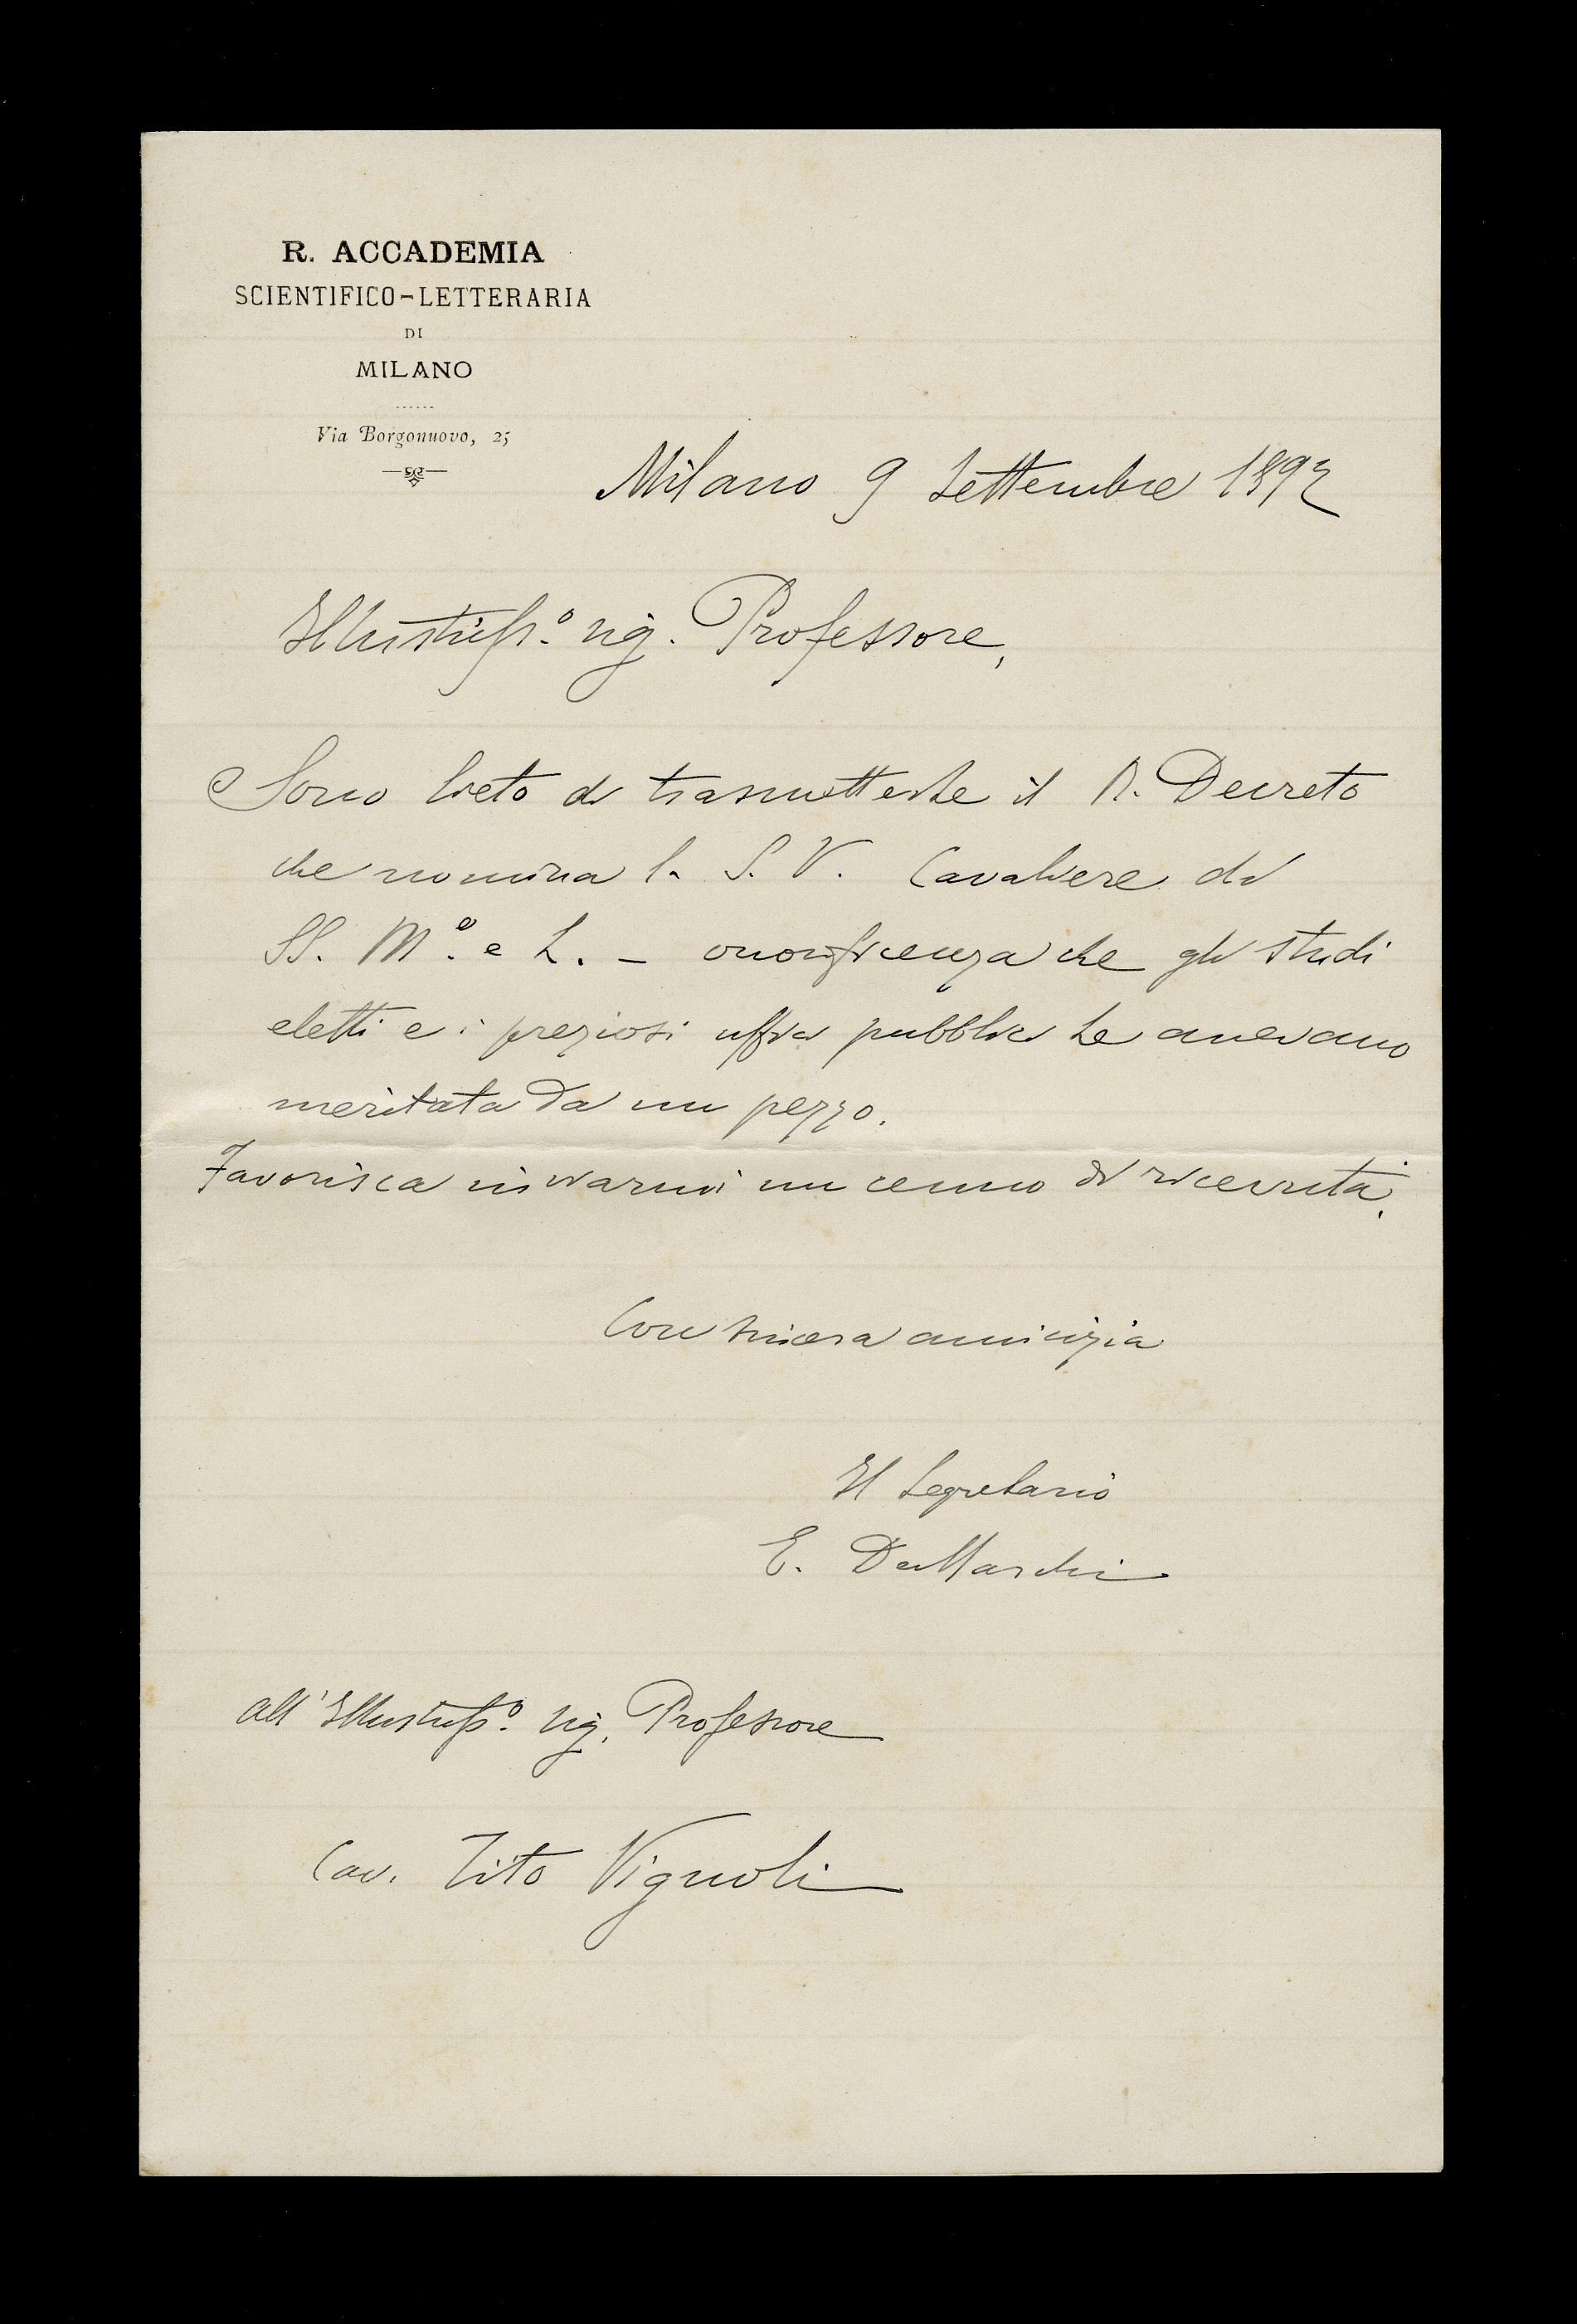 R. ACCADEMIA
SCIENTIFICO-LETTERARIA
DI
MILANO
Via Borgonuovo, 25
Milano 9 Settembre 1892
Illustriss.º sig. Professore,
Sono lieto di trasmetterLe il R. Decreto
che nomina la S. V. Cavaliere di
SS. M.º e L. – onorificenza che gli studi
eletti e i preziosi uffici pubblici Le avevano
meritata da un pezzo.
Favorisca inviarmi un cenno di ricevuta.
Con sincera amicizia
Il Segretario
E. De Marchi
All'Illustriss.º sig. Professore
Cav. Tito Vignoli